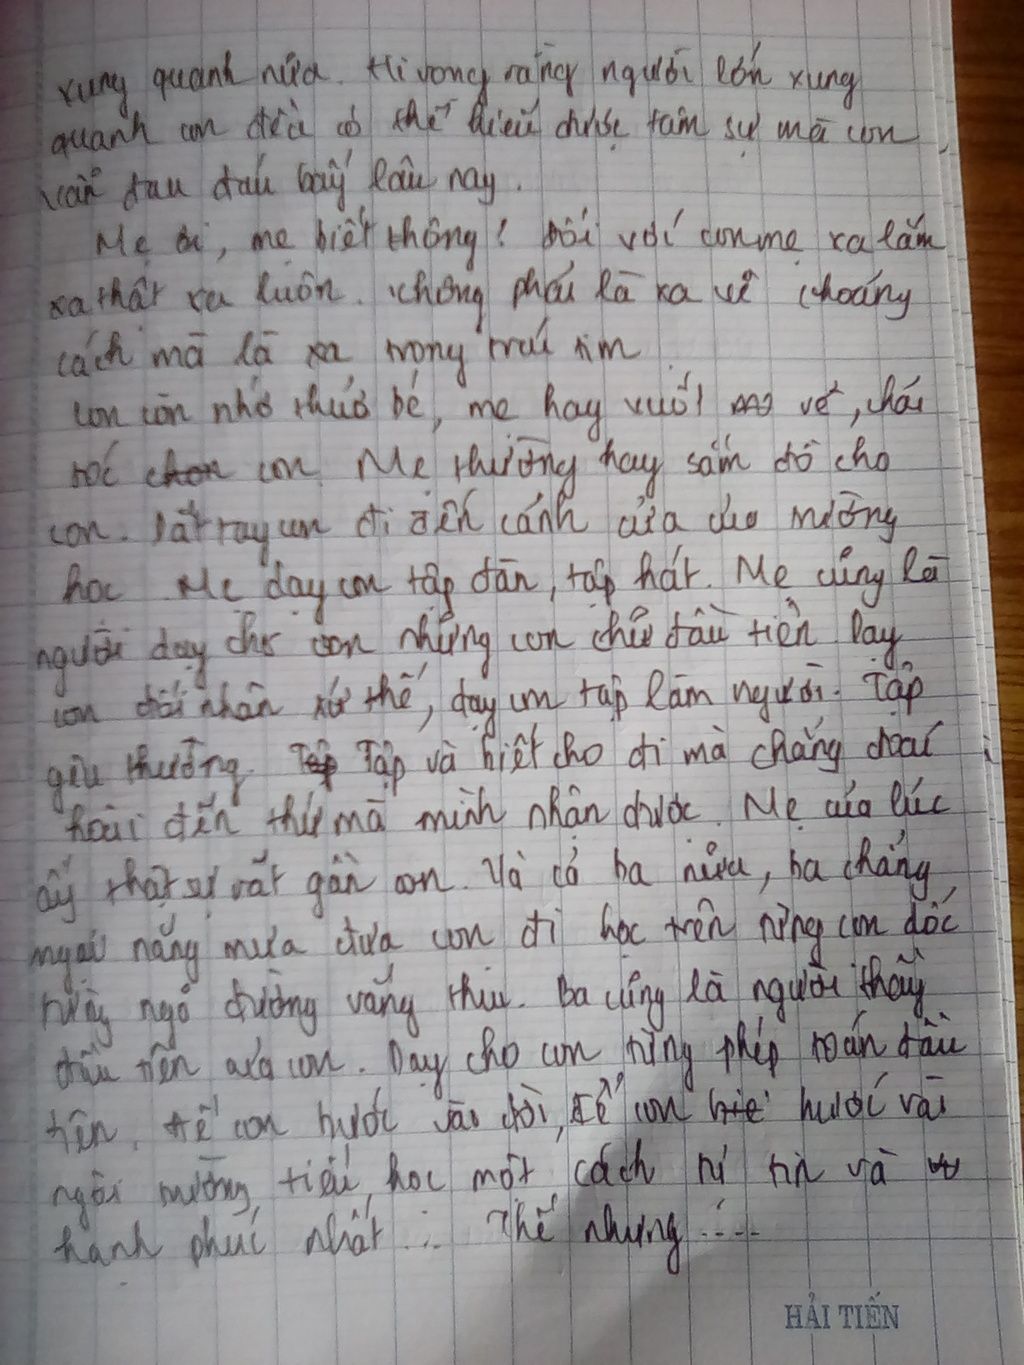 xung quanh nữa. Hi vọng rằng người lớn xung
quanh con đều có thể hiểu được tâm sự mà con
vẫn đau đáu bấy lâu nay.
Mẹ ơi, mẹ biết không! Đối với con mẹ xa lắm
xa thật xa luôn. Không phải là xa về khoảng
cách mà là xa trong trái tim
Con còn nhớ thuở bé, mẹ hay vuốt ve, chải
tóc con. Mẹ thường hay sắm đồ cho
con. Dắt tay con đi đến cánh cửa của trường
học. Mẹ dạy con tập đàn, tập hát. Mẹ cũng là
người dạy cho con những con chữ đầu tiên. Dạy
con đối nhân xử thế, dạy con tập làm người. Tập
yêu thương. Tập và biết cho đi mà chẳng đoái
hoài đến thứ mà mình nhận được. Mẹ của lúc
ấy thật sự rất gần con. Và cả ba nữa, ba chẳng
ngại nắng mưa đưa con đi học trên từng con dốc
từng ngõ đường vắng thiu. Ba cũng là người thầy
đầu tiên của con. Dạy cho con từng phép toán đầu
tiên, để con bước vào đời, để con bước vào
ngôi trường tiểu học một cách tự tin và
hạnh phúc nhất... Thế nhưng....
HẢI TIẾN